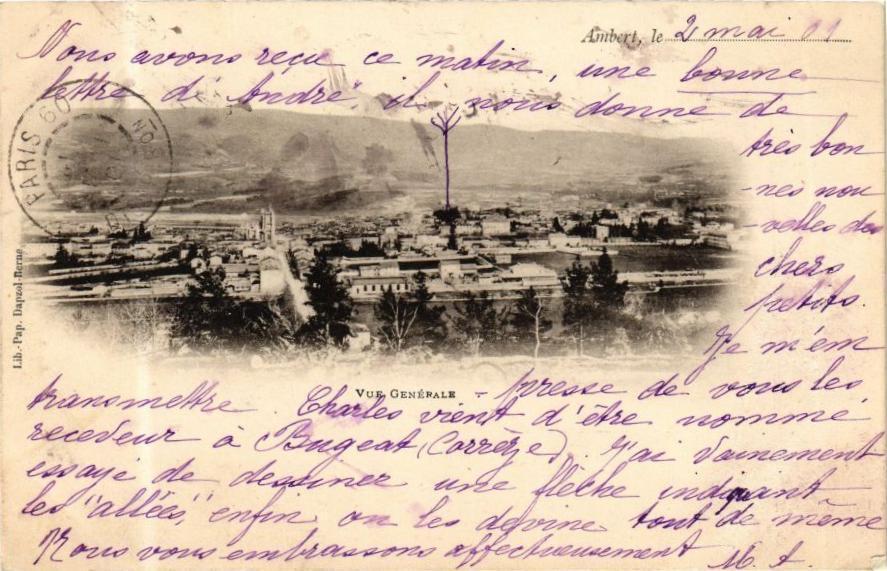 Ambert, le 2 mai 01
Nous avons reçu ce matin, une bonne
lettre d'André, il nous donne de
très bon
-nes nou
-velles des
chers
petits.
Je m'em
VUE GÉNÉRALE
- presse de vous les
transmettre. Charles vient d'être nommé
receveur à Bugeat (Corrèze) J'ai vainement
essayé de dessiner une flèche indiquant
les "allées", enfin on les devine tout de même
Nous vous embrassons affectueusement M. A.
PARIS 60
Lib.-Pap. Dapzol-Berne